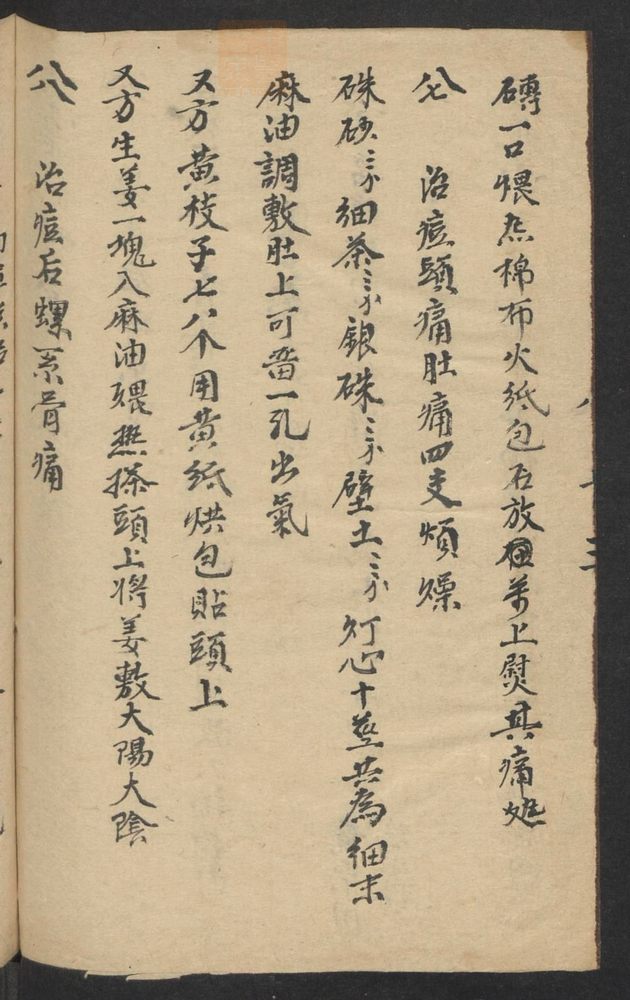 磚一口煨热棉布火纸包石放在弟上熨其痛処
六七　治痘頭痛肚痛四支煩燥
硃砂三分細茶三分銀硃三分壁土三分灯心十莖共為細末
麻油調敷肚上可畱一孔出氣
又方黄枝子七八个用黄紙烘包貼頭上
又方生姜一塊入麻油煨热搽頭上将姜敷大陽大陰
六八　治痘后螺系骨痛